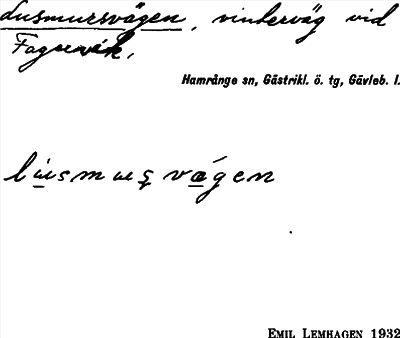 Lusmursvägen, vinterväg vid
Fagervik.
Hamrånge sn, Gästrikl. ö. tg, Gävleb. l.
EMIL LEMHAGEN 1932